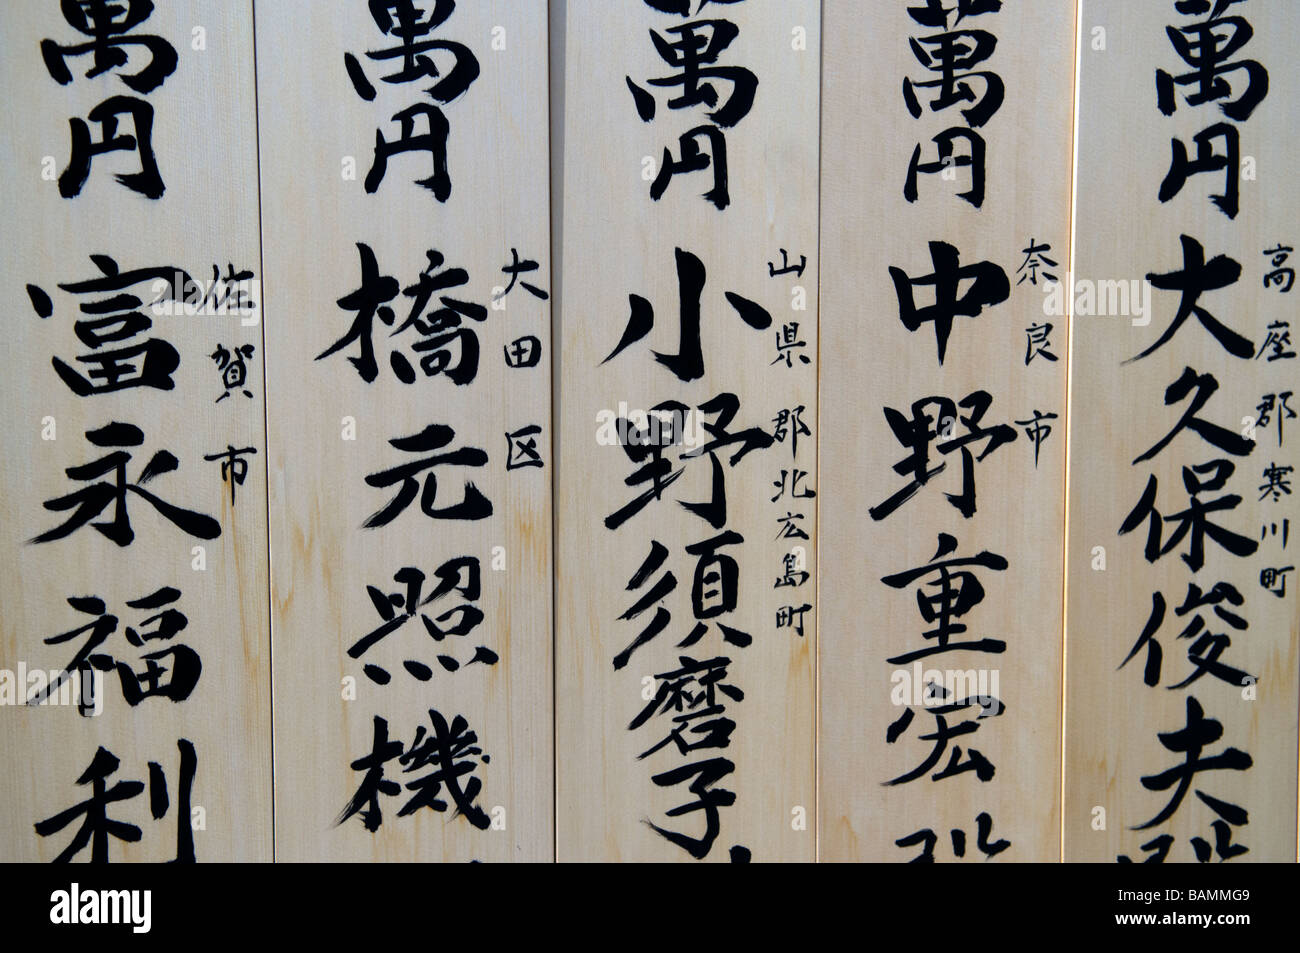 萬円
高座郡寒川町
大久保俊夫
萬円
奈良市
中野重宏
萬円
山県郡北広島町
小野須磨子
萬円
大田区
橋元照機
萬円
佐賀市
富永福利
alamy
Image ID: BAMMG9
www.alamy.com